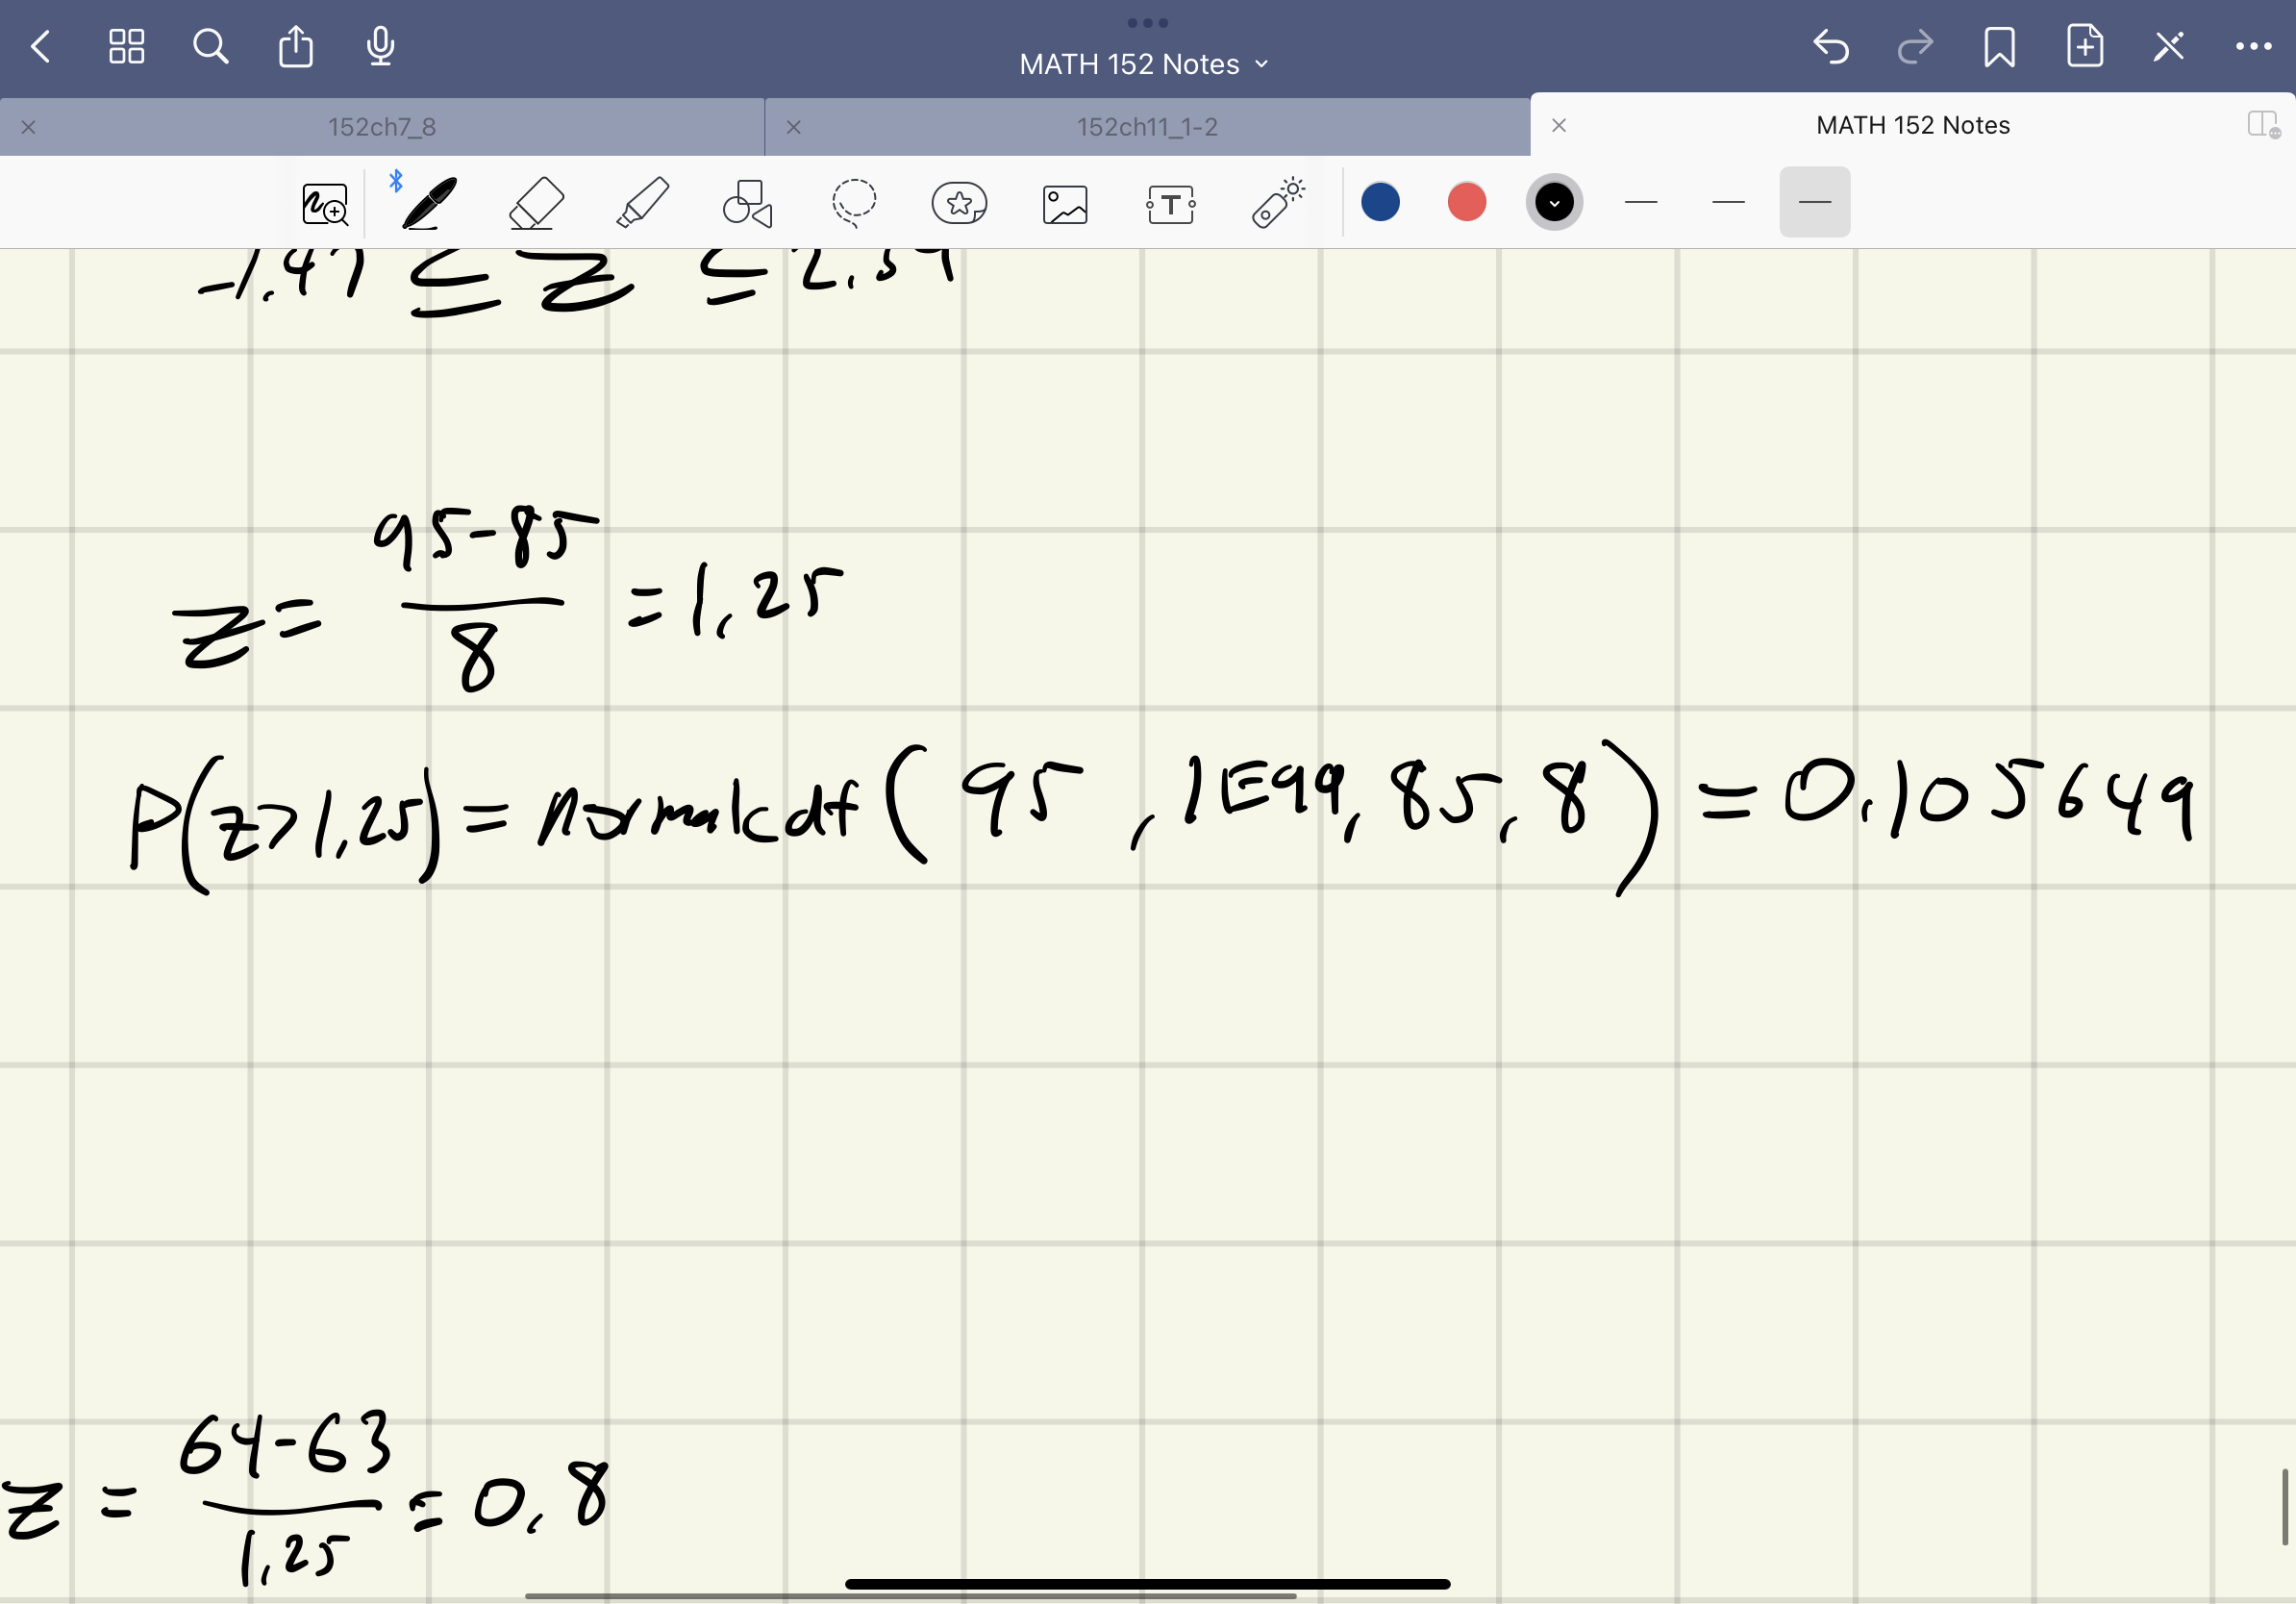 MATH 152 Notes
152ch7_8
152ch11_1-2
MATH 152 Notes
T
-1.47 ≤ Z ≤ 2.59
Z = 95-85 / 8 = 1,25
P(z>1,25) = normalcdf(95,1E99,85,8) = 0.105649
Z = 64-63 / 1,25 = 0,8